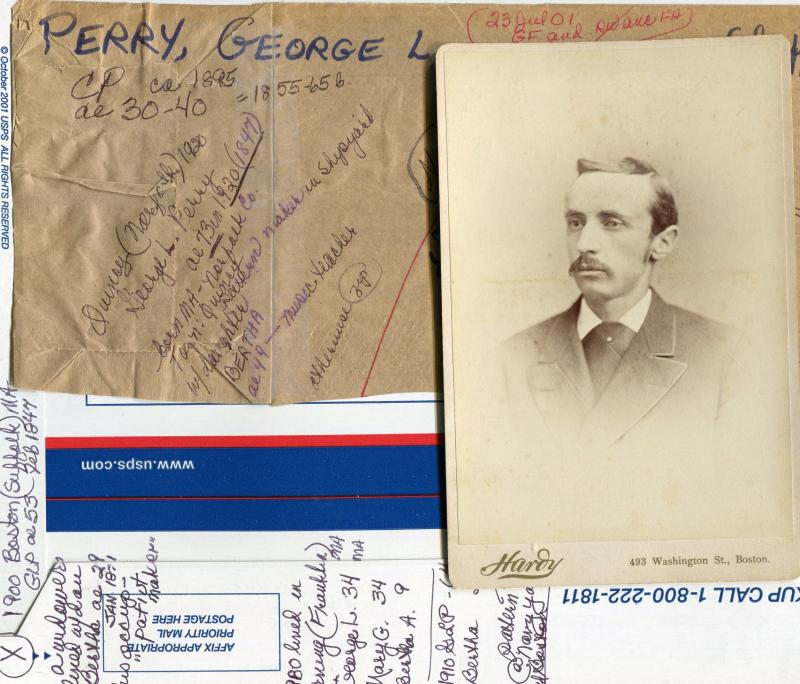 PERRY, GEORGE L
23 Jul 01
GF and
CP ca. 1895
ae 30-40 = 1855-65 b.
Quincy (Norfolk) 1920
George L. Perry
ae 73 in 1920 (1847)
born MA - Norfolk Co.
Town: Quincy
w/ daughter
BERTHA
ae 49 — music teacher
maker in Shipyard
otherwise
© October 2001 USPS ALL RIGHTS RESERVED
www.usps.com
X 1900 Boston (Suffolk) MA
GLP ae 53 Feb 1847
a widower
lived w/ dau
Bertha ae 29
JAN 1871
"pattern
maker"
AFFIX APPROPRIATE
PRIORITY MAIL
POSTAGE HERE
1880 lived in
(Franklin) MA
George L. 34 MA
Mary G. 34
Bertha A. 9
1910
Bertha
KUP CALL 1-800-222-1811
Hardy
493 Washington St., Boston.